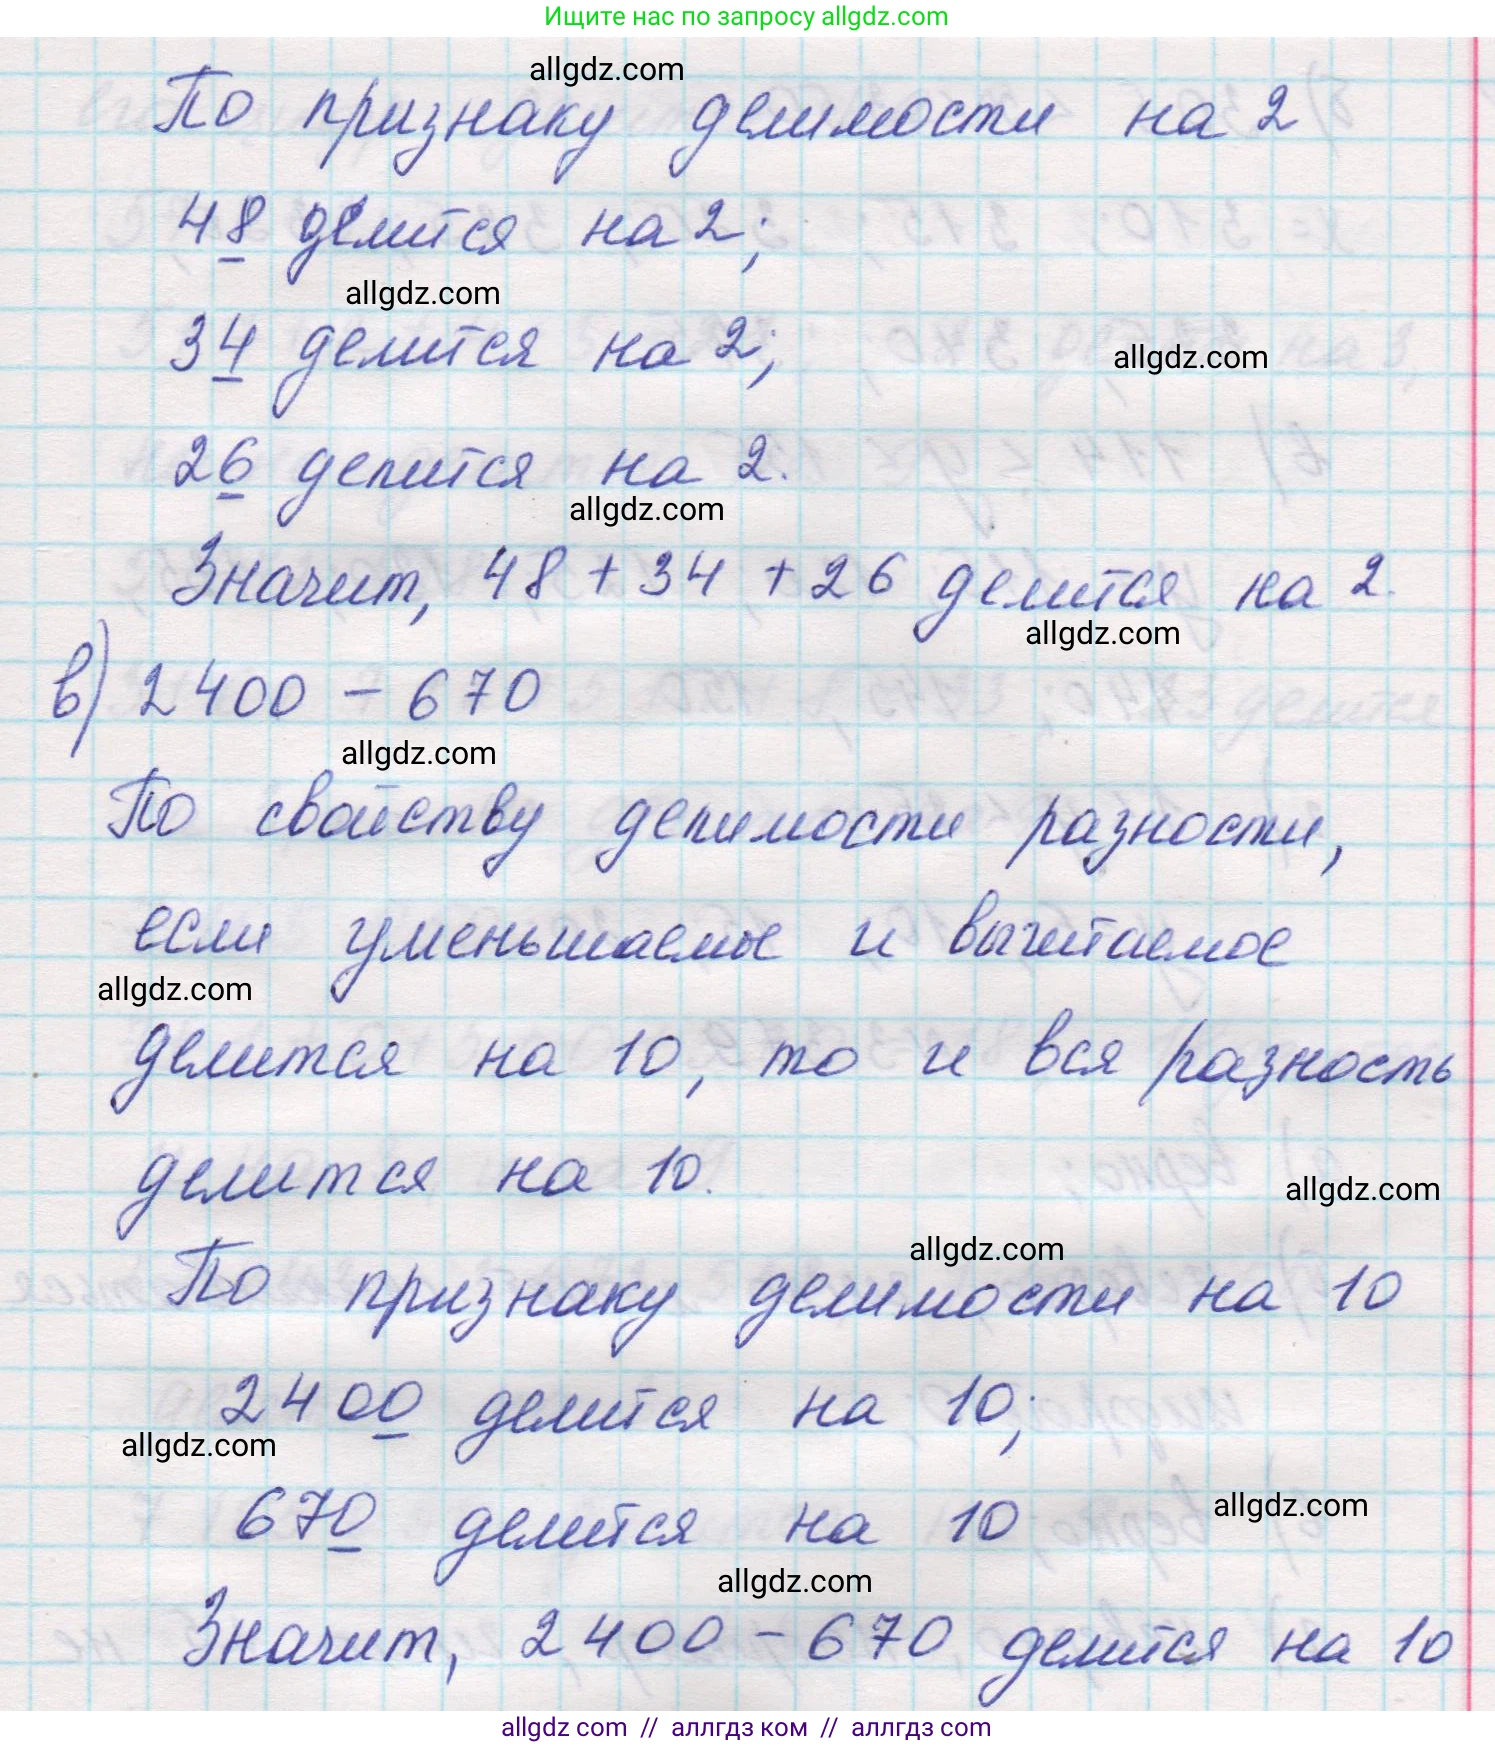 Ищите нас по запросу allgdz.com
allgdz.com
По признаку делимости на 2
48 делится на 2;
allgdz.com
34 делится на 2;
allgdz.com
26 делится на 2.
allgdz.com
Значит, 48 + 34 + 26 делится на 2.
allgdz.com
в) 2400 - 670
allgdz.com
По свойству делимости разности,
если уменьшаемые и вычитаемое
allgdz.com
делится на 10, то и вся разность
делится на 10.
allgdz.com
allgdz.com
По признаку делимости на 10
2400 делится на 10;
allgdz.com
670 делится на 10
allgdz.com
allgdz.com
Значит, 2400 - 670 делится на 10
allgdz com // аллгдз ком // аллгдз com